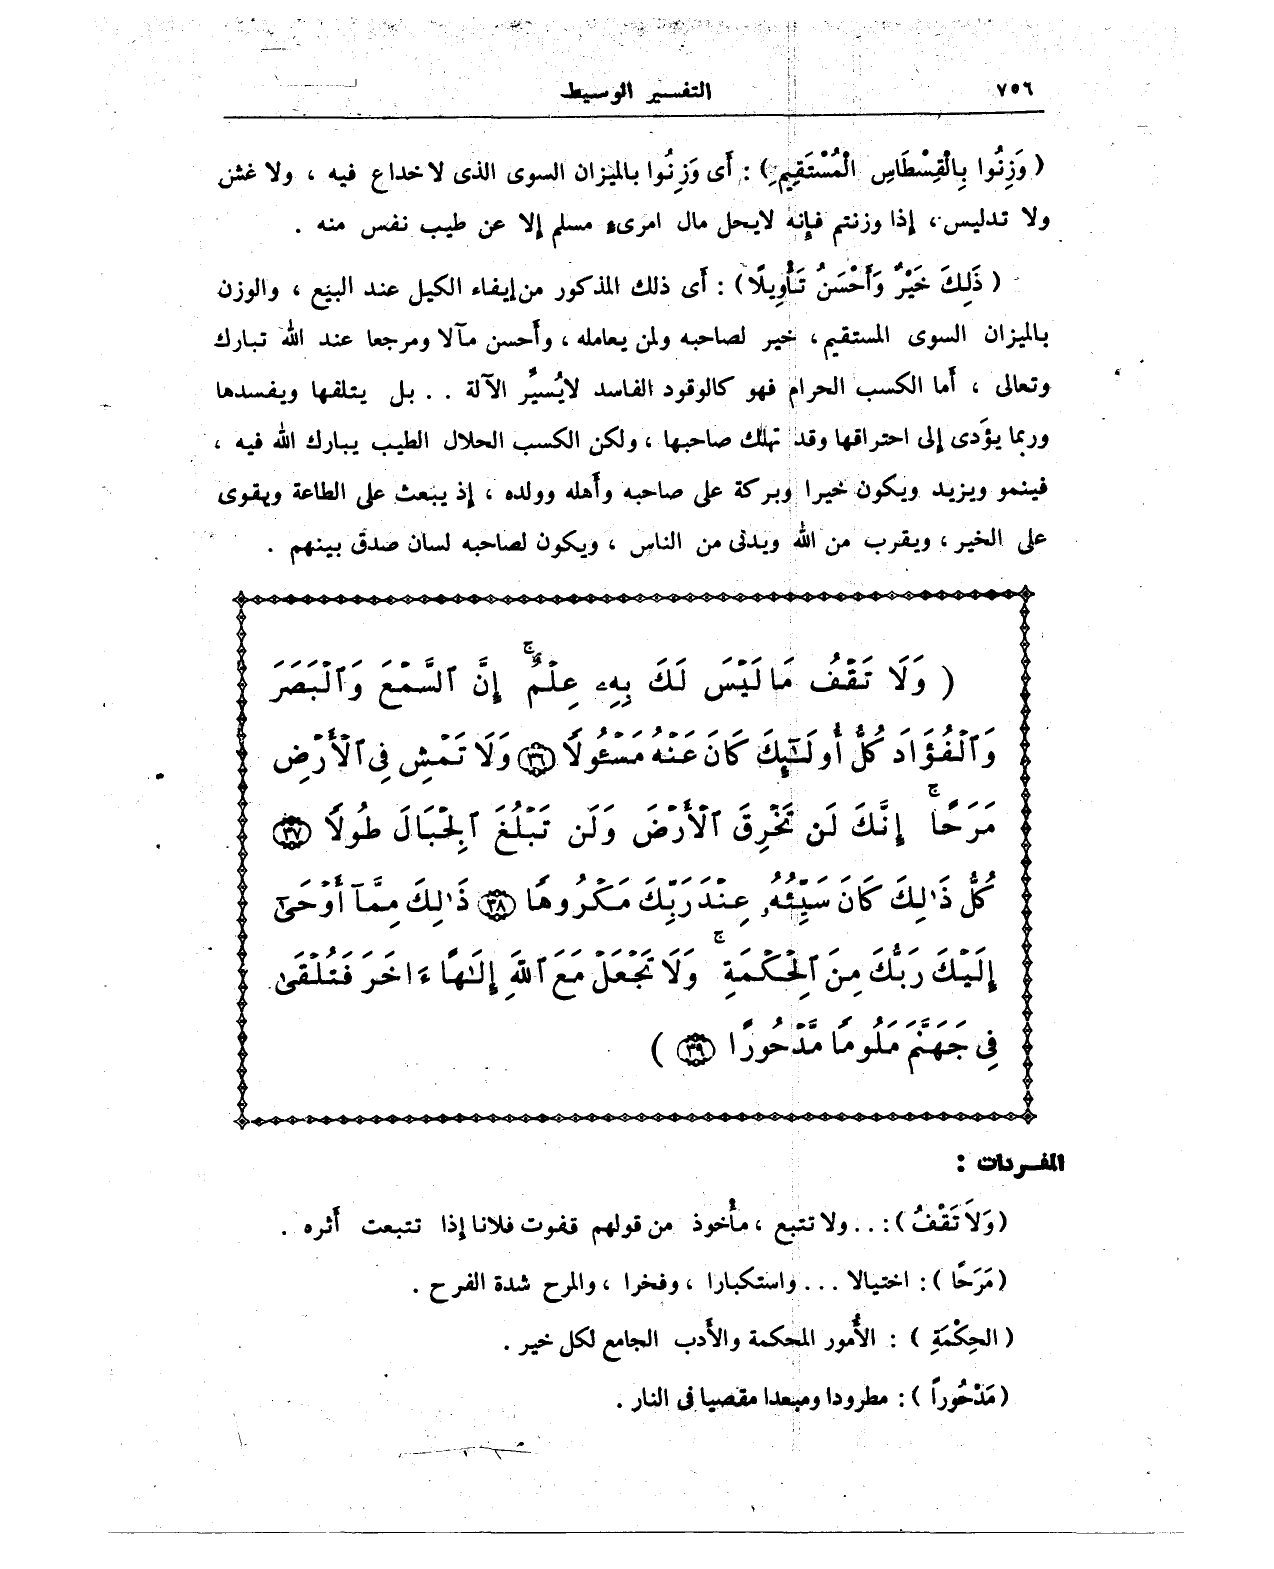 ٧٥٦
التفسير الوسيط
( وَزِنُوا بِالْقِسْطَاسِ الْمُسْتَقِيمِ) : أَى وَزِنُوا بالميزان السوى الذى لا خداع فيه ، ولا غش
ولا تدليس، إذا وزنتم فإنه لايحل مال امرىء مسلم إلا عن طيب نفس منه .
( ذَلِكَ خَيْرٌ وَأَحْسَنُ تَأْوِيلًا) : أَى ذلك المذكور من إيفاء الكيل عند البيع ، والوزن
بالميزان السوى المستقيم، خير لصاحبه ولمن يعامله ، وأَحسن مآلا ومرجعا عند الله تبارك
وتعالى ، أَما الكسب الحرام فهو كالوقود الفاسد لايُسيِّر الآلة . . بل يتلفها ويفسدها
وربما يؤَدى إلى احتراقها وقد تهلك صاحبها ، ولكن الكسب الحلال الطيب يبارك الله فيه ،
فينمو ويزيد ويكون خيرا وبركة على صاحبه وأَهله وولده ، إذ يبعث على الطاعة ويقوى
على الخير ، ويقرب من الله ويدنى من الناس ، ويكون لصاحبه لسان صدق بينهم .
( وَلَا تَقْفُ مَا لَيْسَ لَكَ بِهِۦ عِلْمٌ ۚ إِنَّ ٱلسَّمْعَ وَٱلْبَصَرَ
وَٱلْفُؤَادَ كُلُّ أُو۟لَـٰٓئِكَ كَانَ عَنْهُ مَسْـُٔولًا ٣٦ وَلَا تَمْشِ فِى ٱلْأَرْضِ
مَرَحًا ۚ إِنَّكَ لَن تَخْرِقَ ٱلْأَرْضَ وَلَن تَبْلُغَ ٱلْجِبَالَ طُولًا ٣٧
كُلُّ ذَٰلِكَ كَانَ سَيِّئُهُۥ عِندَ رَبِّكَ مَكْرُوهًا ٣٨ ذَٰلِكَ مِمَّآ أَوْحَىٰٓ
إِلَيْكَ رَبُّكَ مِنَ ٱلْحِكْمَةِ ۗ وَلَا تَجْعَلْ مَعَ ٱللَّهِ إِلَـٰهًا ءَاخَرَ فَتُلْقَىٰ
فِى جَهَنَّمَ مَلُومًا مَّدْحُورًا ٣٩ )
المفردات :
(وَلاَ تَقْفُ ): . . . ولا تتبع ، مأْخوذ من قولهم قفوت فلانا إذا تتبعت أَثره .
(مَرَحًا ) : اختيالا . . . واستكبارا ، وفخرا ، والمرح شدة الفرح .
( الحِكْمَةِ ) : الأُمور المحكمة والأَدب الجامع لكل خير .
(مَدْحُوراً ) : مطرودا ومبعدا مقصيا فى النار .